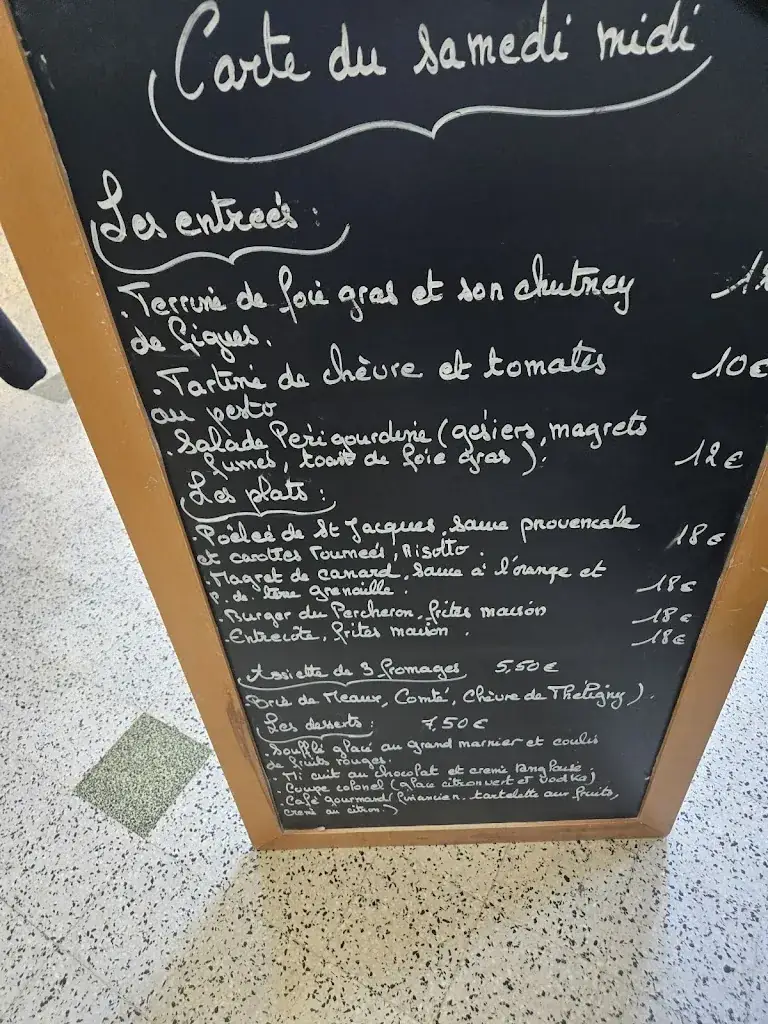 Carte du samedi midi
Les entreés :
. Terrine de foie gras et son chutney
de figues.
. Tartine de chèvre et tomates 10€
au pesto
. Salade Perigourdine (gésiers, magrets
fumés, toast de foie gras). 12€
Les plats :
. Poêleé de St Jacques, sauce provencale 18€
et carottes Tourneés, Risotto.
. Magret de canard, sauce à l'orange et 18€
P. de terre grenaille.
. Burger du Percheron, frites maison 18€
. Entrecote, frites maison. 18€
. Assiette de 3 fromages 5,50€
Brie de Meaux, Comté, Chèvre de Théligny).
Les desserts : 7,50€
. Soufflé glacé au grand marnier et coulis
de fruits rouges.
. Mi cuit au chocolat et creme anglaise.
. Coupe colonel (glace citron vert et vodka)
. Café gourmand (financier, tartelette aux fruits,
creme au citron.)